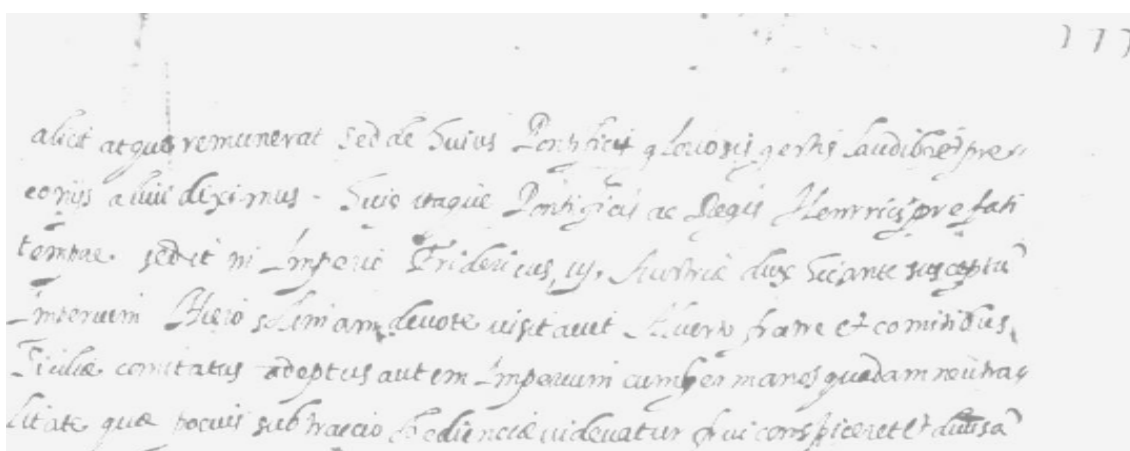 777
atque remunerat sed de huius Pontificis gloriosis gestis laudibus et pre
conijs diximus. huic itaque Pontificis ac Regis Henrici prefati
sedit in Imperio Fridericus iij. Austriæ dux hic ante susceptū
Imperium devote visitavit Alberto fratre et comitibus
Ciciliæ comitatus adeptus autem Imperium cum germanos quadam neutra
litate quæ pocius subtraccio obedienciæ videvatur frui conspiceret et